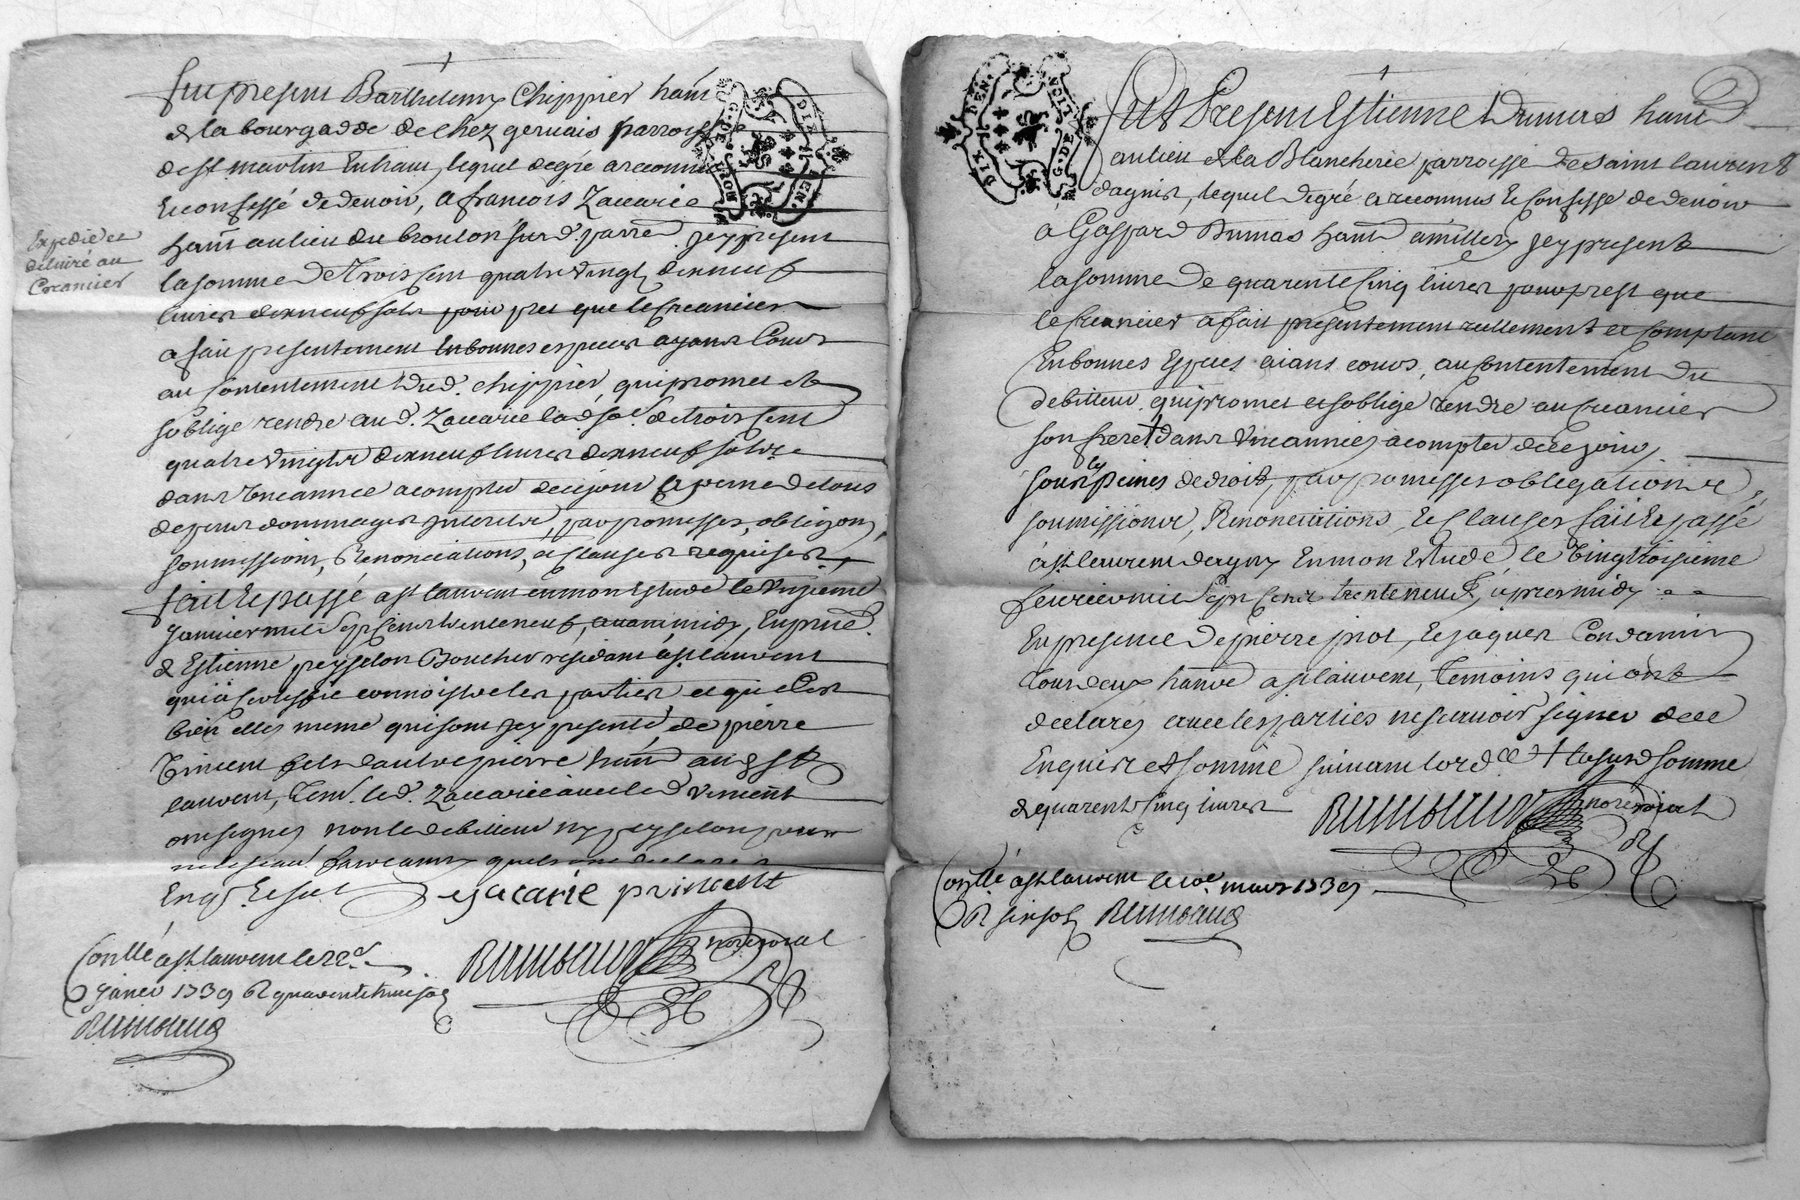 fut present Barthelemy Chippier hant
de la bourgade de chez gervais parroisse
de st martin En haut, lequel de gré a reconnu
Et confessé de devoir, a francois Zaccarie
hant au lieu du broulon susd. parre. jcy present
la somme de trois cent quatre vingt dixneuf
livres dixneuf sols pour prest que le Creancier
a fait presentement En bonnes especes ayans Cours
au Contentement dud. chippier, qui promet et
s'oblige rendre aud. Zaccarie lad. so. de trois Cent
quatre vingts dixneuf livres dixneuf sols
dans une année a compter de ce jour a peine de tous
depens dommages interets, par promesses, obligaons,
soumissions, Renonciations, et clauses requises
fait Et passé a st laurent en mon Estude le unzieme
janvier mil sept Cens trente neuf, avant midy, En prnce
d'Estienne peyselon Boucher residant a st laurent
qui a Certifié connoistre les parties et que C'est
bien elles meme qui sont jcy presente, de pierre
Vincent fils d'autre pierre hant aud. st
laurent, tem. led. Zaccarie avec led. Vincent
ont signes non le debiteur ny peyselon pour
ne le scavoir
Enq. Et so.
Zacarie p vincent
Expedié et
delivré au
Creancier
Conllé a st laurent le 22e
janvr 1739 R quarente huit sols
Rimbaud
Rimbaud nore royal
MOY. G. DE LYON. DIX DEN.
fut Present Estienne Dumas hant
au lieu de la Blancherie parroisse de saint laurent
dagnis, lequel de gré a reconnus Et Confesse de devoir
a Gaspard Dumas hant a millery jcy present
la somme de quarente Cinq livres pour prest que
le Creancier a fait presentement reellement et Comptant
En bonnes Especes aians cours, au Contentement du
debiteur qui promet et s'oblige rendre au Creancier
son frere † dans une année, a compter de ce jour,
sous les peines de droit, par promesses obligations
soumissions, Renonciations, Et Clauses fait Et passé
a st laurent dagny En mon Estude, le vingt troisieme
fevrier mil sept Cens trente neuf, apres midy
En presence de pierre piot, Et jaques Condamin
tous deux hants a st laurent, temoins qui ont
declarés avec les parties ne scavoir signer de ce
Enquis et sommé suivant lord.ce † la susd. somme
de quarente Cinq livres
Rimbaud nore royal
Conllé a st laurent le 10e mars 1739
R six sols Rimbaud
DIX DEN. G. DE